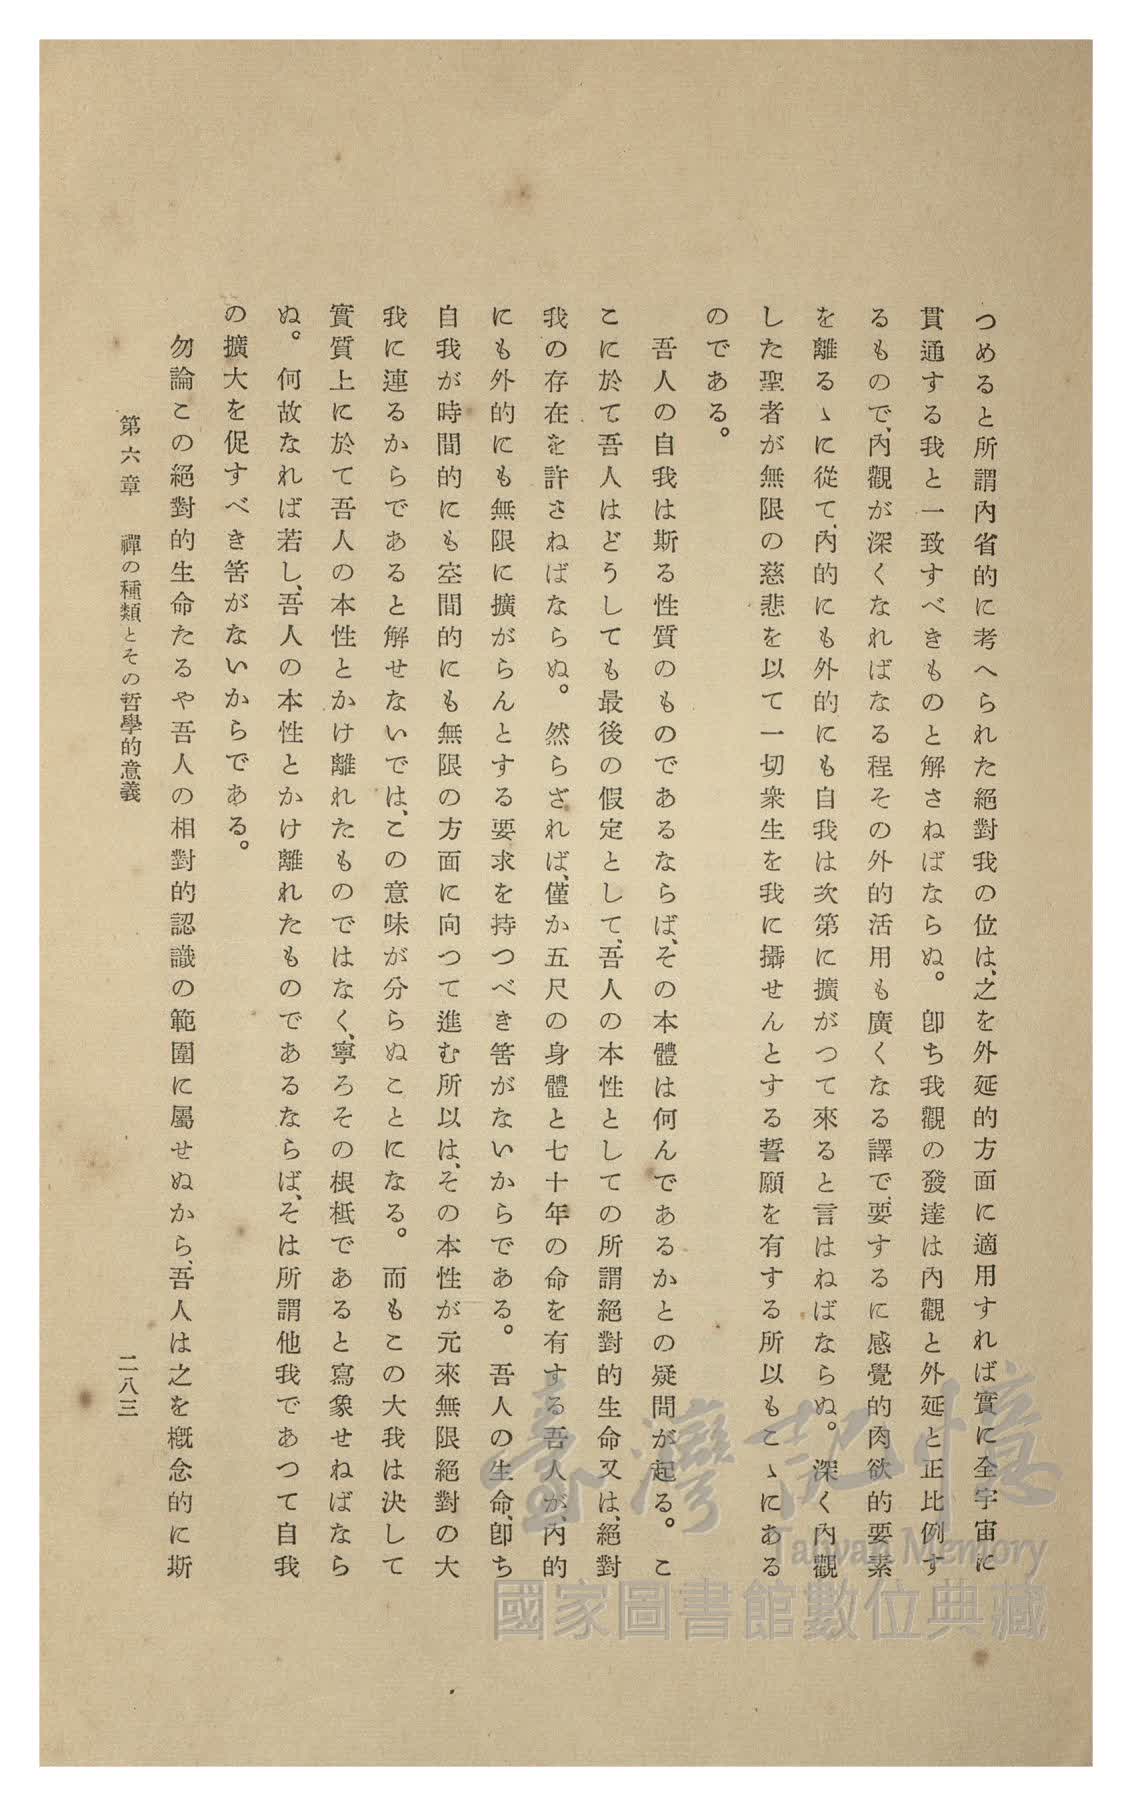 つめると所謂內省的に考へられた絕對我の位は、之を外延的方面に適用すれば實に全宇宙に
貫通する我と一致すべきものと解さねばならぬ。卽ち我觀の發達は內觀と外延と正比例す
るもので、內觀が深くなればなる程その外的活用も廣くなる譯で、要するに感覺的肉欲的要素
を離るゝに從て、內的にも外的にも自我は次第に擴がつて來ると言はねばならぬ。深く內觀
した聖者が無限の慈悲を以て一切衆生を我に攝せんとする誓願を有する所以もこゝにある
のである。
吾人の自我は斯る性質のものであるならば、その本體は何んであるかとの疑問が起る。こ
こに於て吾人はどうしても最後の假定として、吾人の本性としての所謂絕對的生命又は、絕對
我の存在を許さねばならぬ。然らざれば、僅か五尺の身體と七十年の命を有する吾人が、內的
にも外的にも無限に擴がらんとする要求を持つべき筈がないからである。吾人の生命、卽ち
自我が時間的にも空間的にも無限の方面に向つて進む所以は、その本性が元來無限絕對の大
我に連るからであると解せないでは、この意味が分らぬことになる。而もこの大我は決して
實質上に於て吾人の本性とかけ離れたものではなく、寧ろその根柢であると寫象せねばなら
ぬ。何故なれば若し、吾人の本性とかけ離れたものであるならば、そは所謂他我であつて自我
の擴大を促すべき筈がないからである。
勿論この絕對的生命たるや吾人の相對的認識の範圍に屬せぬから、吾人は之を槪念的に斯
第六章 禪の種類とその哲學的意義
二八三
臺灣記憶
Taiwan Memory
國家圖書館數位典藏